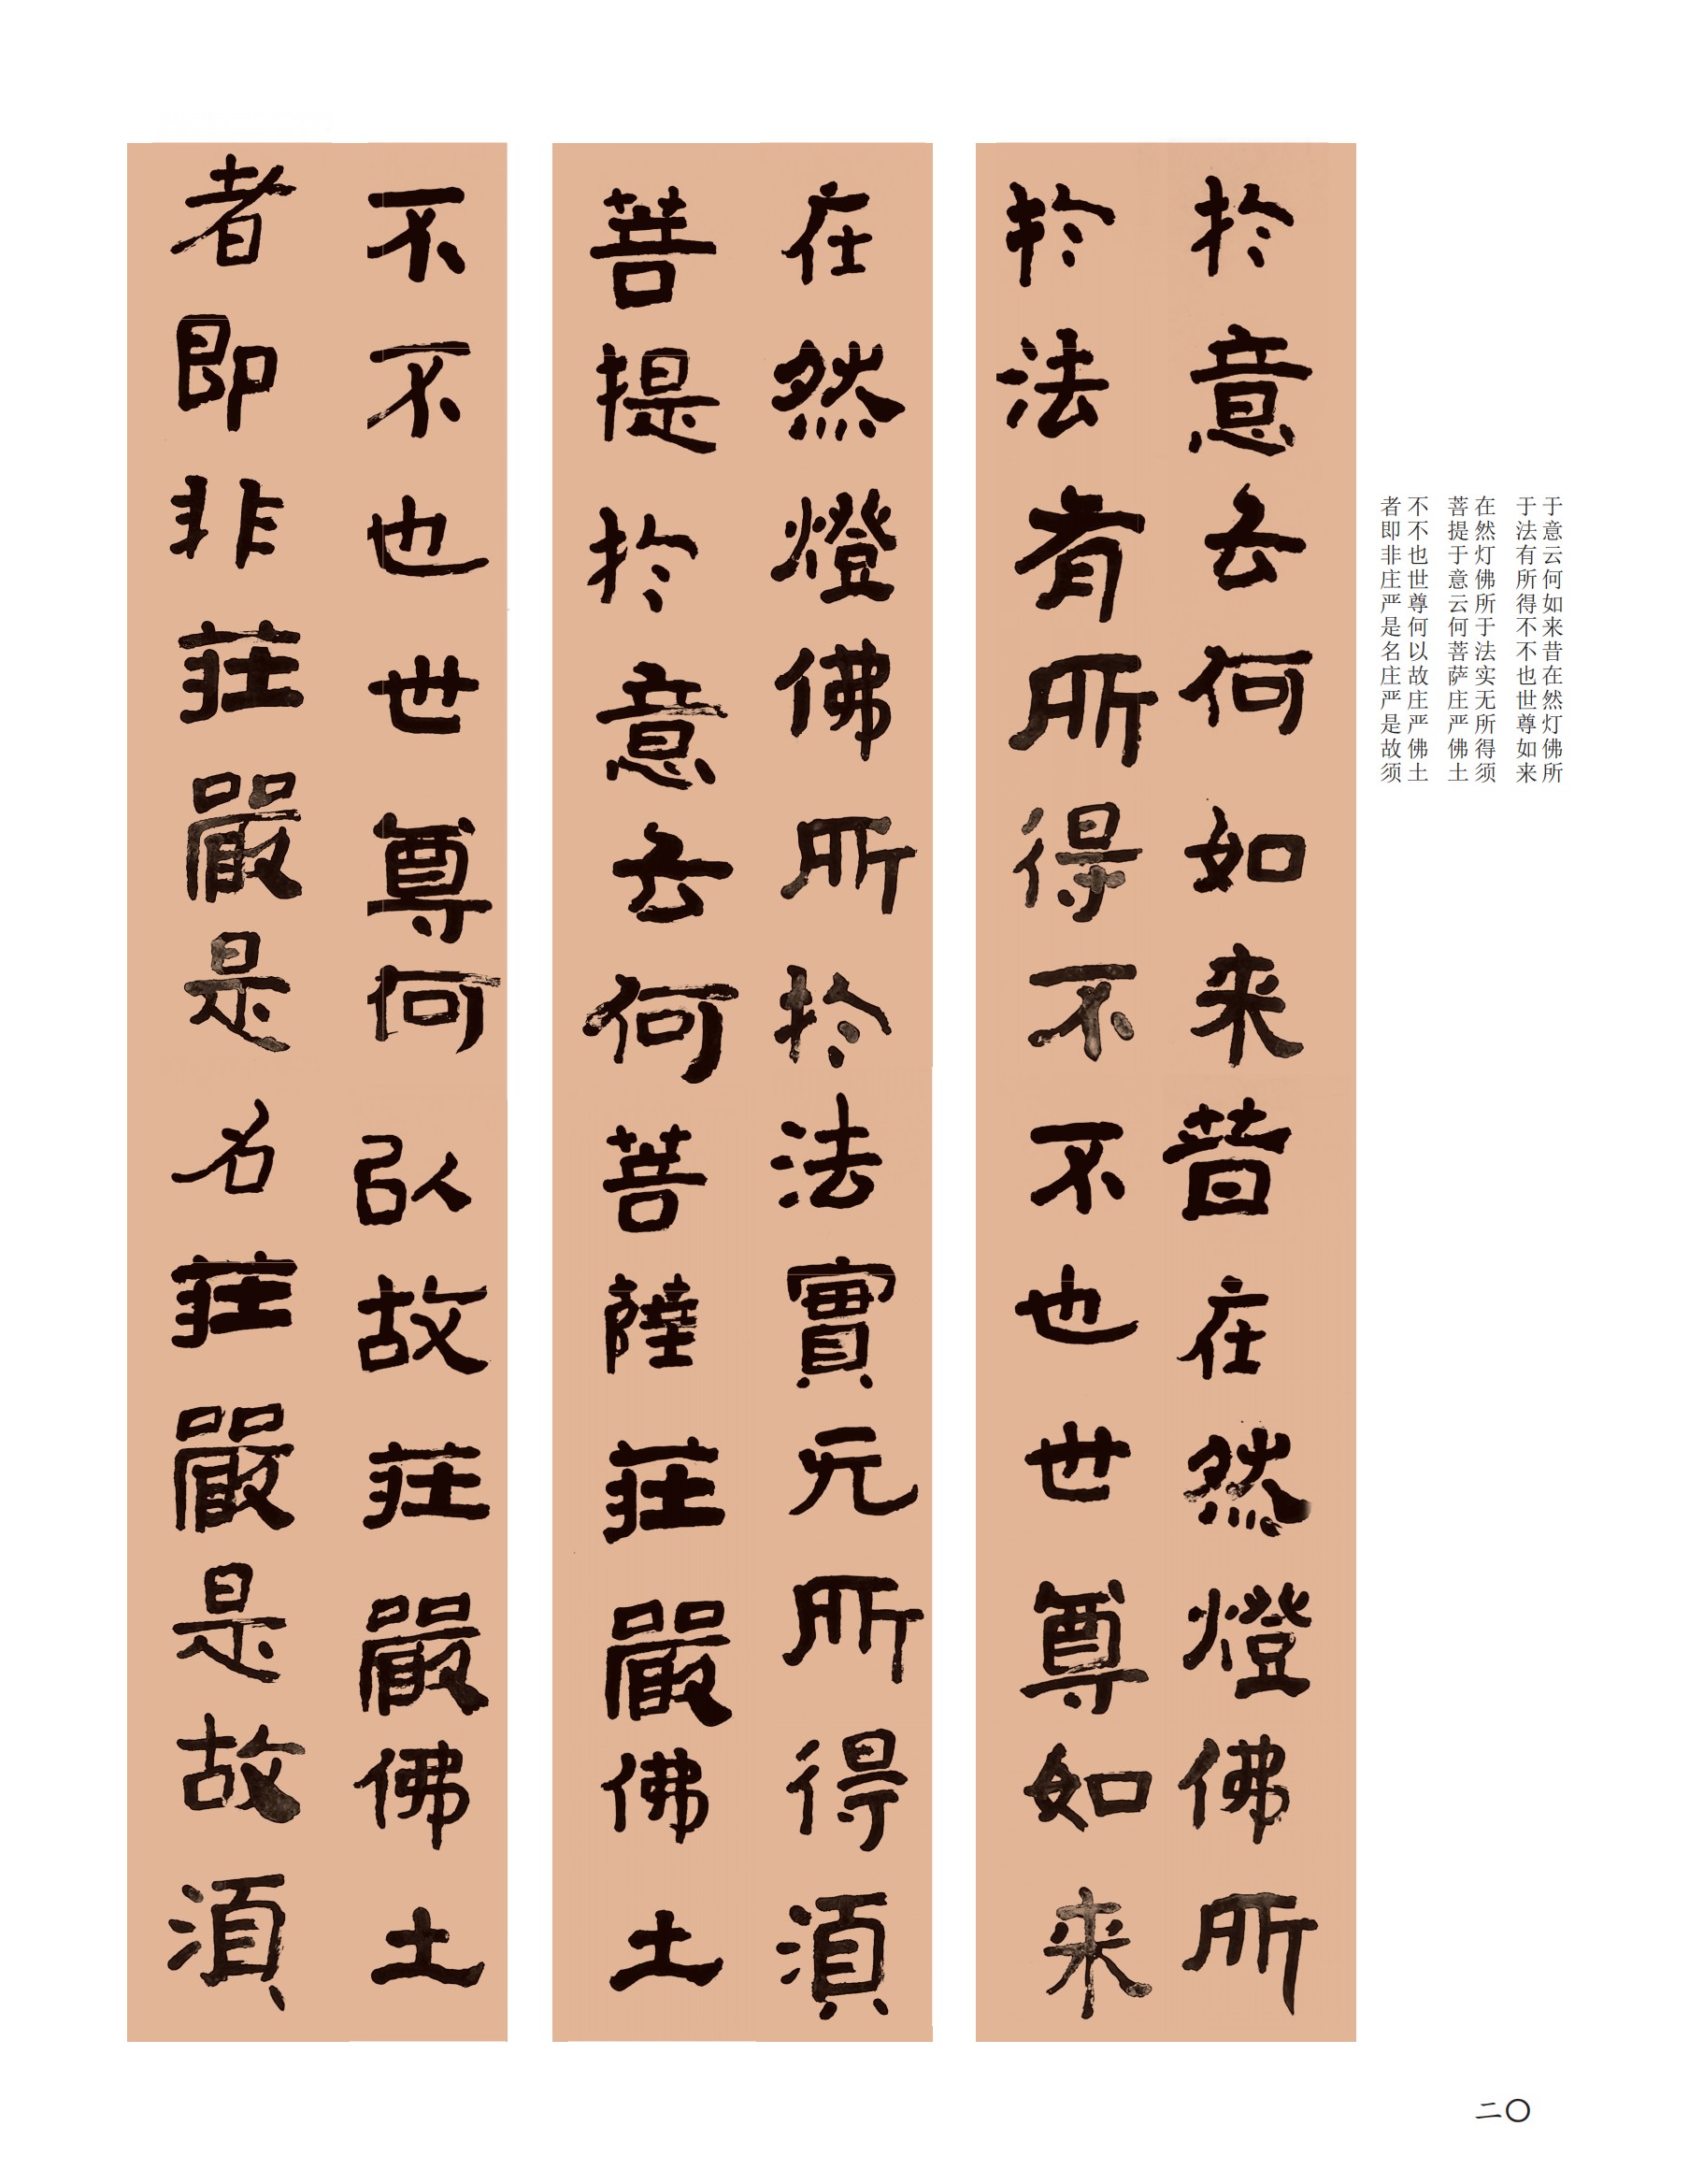 於意云何如来昔在然燈佛所
於法有所得不不也世尊如来
在然燈佛所於法實无所得須
菩提於意云何菩薩莊嚴佛土
不不也世尊何以故莊嚴佛土
者即非莊嚴是名莊嚴是故須
于意云何如来昔在然灯佛所
于法有所得不不也世尊如来
在然灯佛所于法实无所得须
菩提于意云何菩萨庄严佛土
不不也世尊何以故庄严佛土
者即非庄严是名庄严是故须
二〇